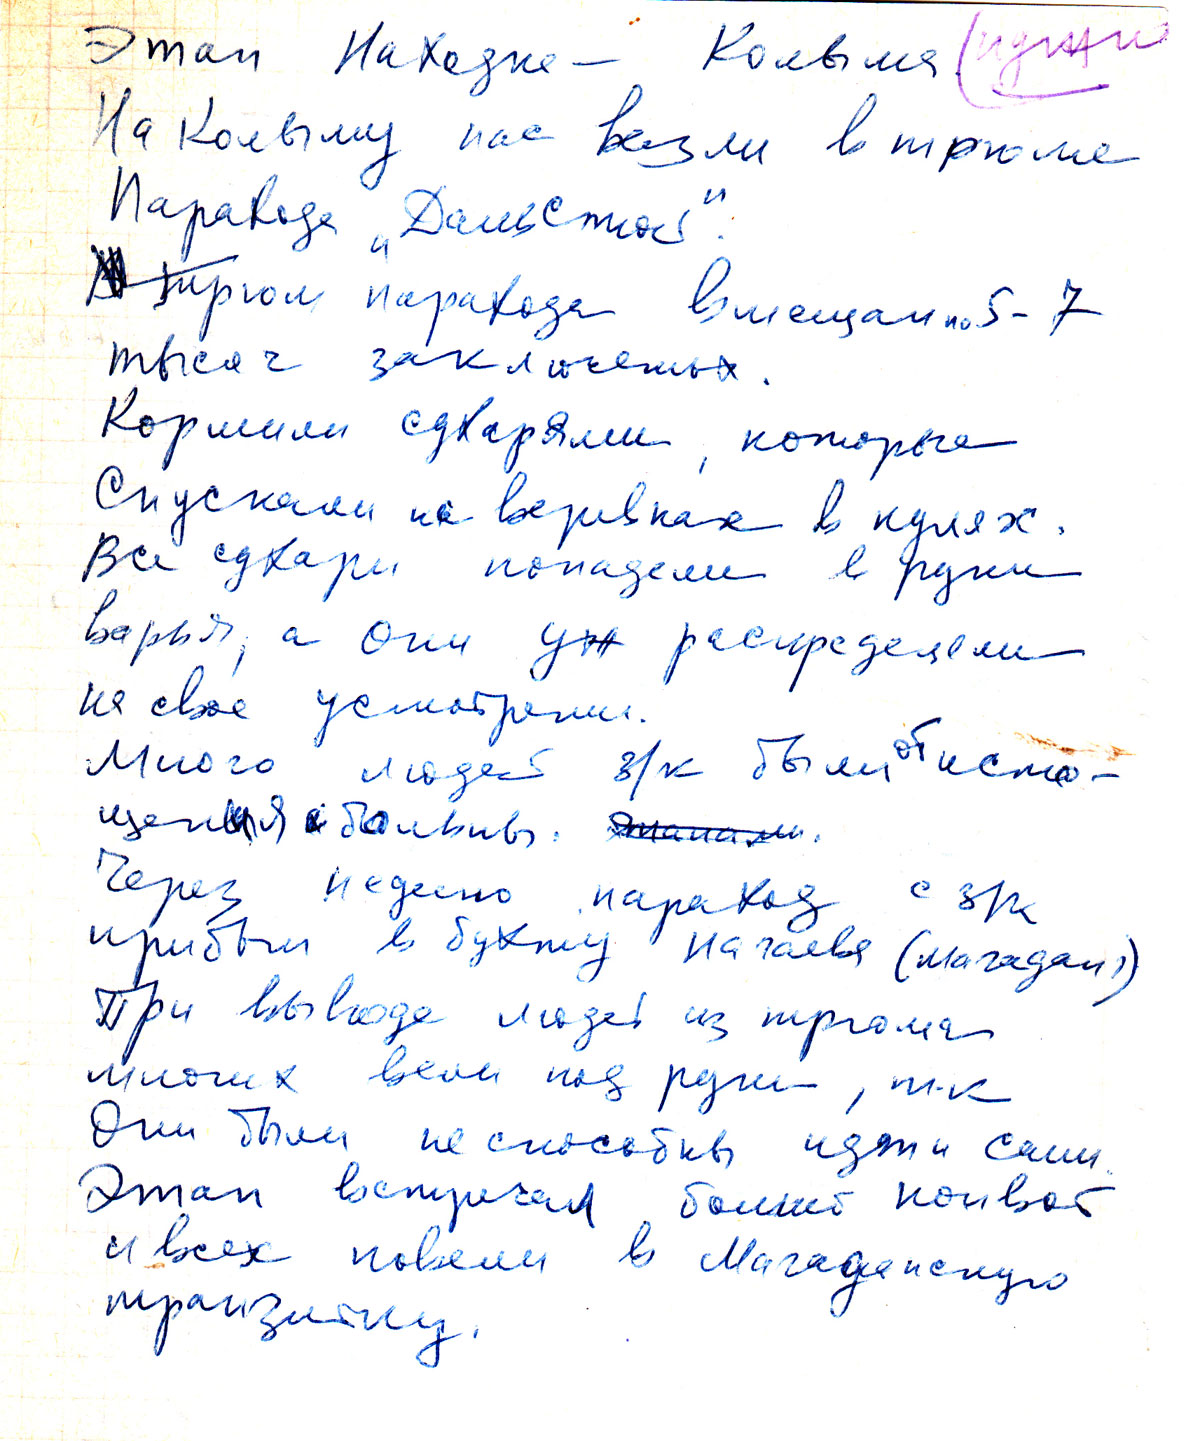 Этап Находка — Колыма. (нужно
На Колыму нас везли в трюме
Парахода „Дальстрой".
Трюм парахода вмещали по 5-7
тысяч заключеных.
Кормили сухарями, которые
Спускали на веревках в кулях.
Все сухари попадали в руки
ворья, а они уж распределяли
на свое усмотрени.
Много людей з/к были от исто-
щения больны. Этапами.
Через неделю параход с з/к
прибыл в бухту Нагаева (Магадан)
При выводе людей из трюма
многих вели под руки, т-к
Они были неспособны идти сами.
Этап встречал большой конвой
и всех повели в Магаданскую
транзитку.